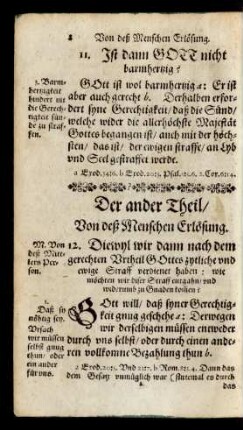 8 Von deß Menschen Erlösung.
11. Ist dann GOTT nicht
barmhertzig?
3. Barm-
hertzigkeit
hindert nit
die Gerech-
tigkeit sün-
de zu straf-
fen.
GOtt ist wol barmhertzig a: Er ist
aber auch gerecht b. Derhalben erfor-
dert syne Gerechtigkeit/ daß die Sünd/
welche wider die allerhöchste Majestät
Gottes begangen ist/ auch mit der höch-
sten/ das ist/ der ewigen straffe/ an Lyb
und Seel gestraffet werde.
Der ander Theil/
Von deß Menschen Erlösung.
M. Von
deß Mitt-
lers Per-
son.
12. Diewyl wir dann nach dem
gerechten Vrtheil Gottes zytliche vnd
ewige Straff verdienet haben: wie
möchten wir diser Straff entgahn/ und
widerumb zu Gnaden kom̃en?
1.
Daß sy
nöhtig sey.
Vrsach
wir müssen
selbst gnug
thun/ oder
ein ander
für uns.
GOtt will/ daß syner Gerechtig-
keit gnug geschehe a: Derwegen
wir derselbigen müssen entweder
durch vns selbst/ oder durch einen ande-
ren vollkom̃ne Bezahlung thun b.
Dann das
dem Gesatz unmüglich war (sintemal es durch
das